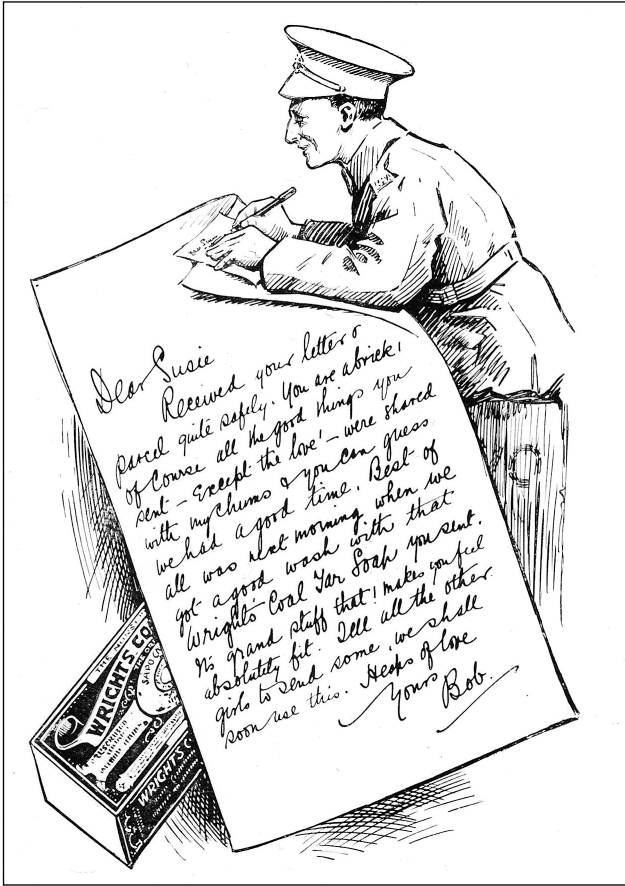 Dear Susie
Received your letter &
parcel quite safely. You are a brick!
of course all the good things you
sent – Except the love! – were shared
with my chums & you can guess
we had a good time. Best of
all was next morning when we
got a good wash with that
Wright's Coal Tar Soap you sent.
Its grand stuff that! makes you feel
absolutely fit. Tell all the other
girls to send some, we shall
soon use this. Heaps of love
Yours
Bob.
WRIGHTS CO
WRIGHTS C